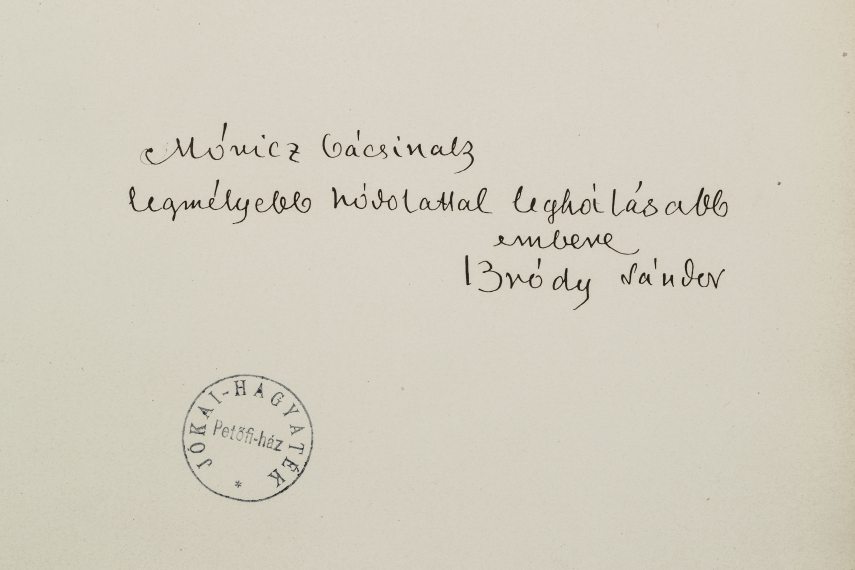 Móricz bácsinak
legmélyebb hódolattal leghálásabb
embere
Bródy Sándor
JÓKAI-HAGYATÉK
Petőfi-ház
*